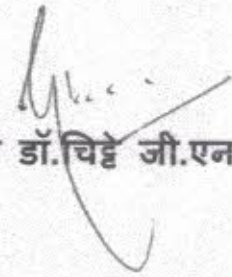 डॉ.चिट्टे जी.एन